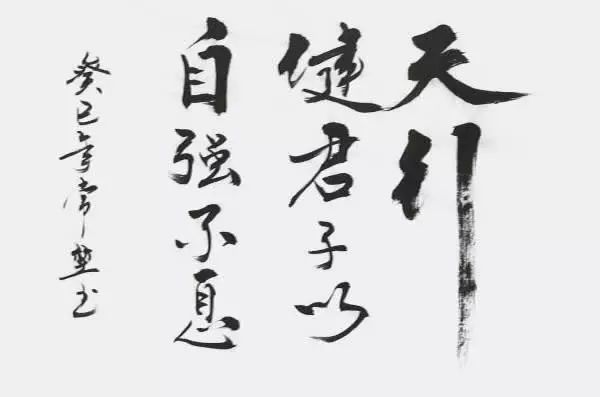 天行
健君子以
自强不息
癸巳年常楚书